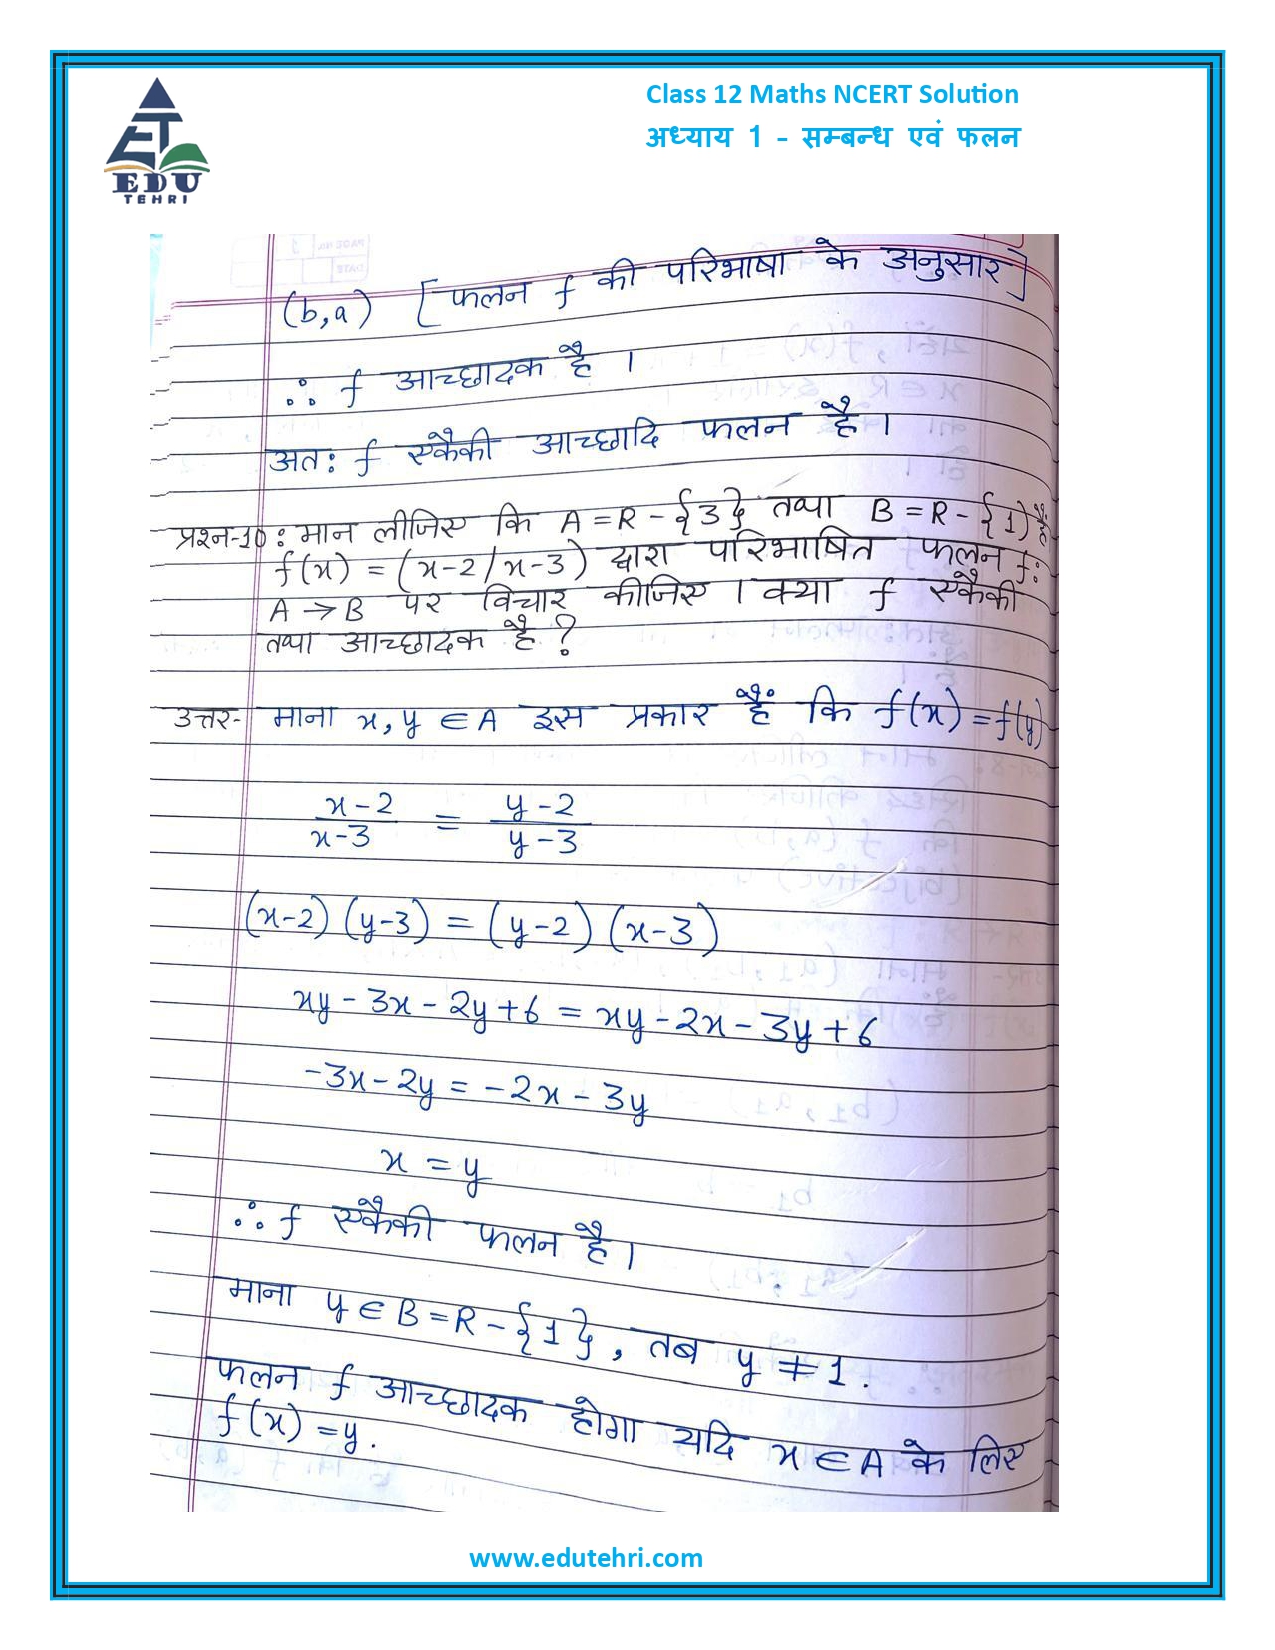 Class 12 Maths NCERT Solution
अध्याय 1 - सम्बन्ध एवं फलन
ET
EDU
TEHRI
(b,a) [फलन f की परिभाषा के अनुसार]
∴ f आच्छादक है ।
अतः f एकैकी आच्छादि फलन है ।
प्रश्न-10: मान लीजिए कि A = R - {3} तथा B = R - {1} है
f(x) = (x-2/x-3) द्वारा परिभाषित फलन f:
A → B पर विचार कीजिए । क्या f एकैकी
तथा आच्छादक है ?
उत्तर- माना x, y ∈ A इस प्रकार हैं कि f(x) = f(y)
x-2/x-3 = y-2/y-3
(x-2) (y-3) = (y-2) (x-3)
xy - 3x - 2y + 6 = xy - 2x - 3y + 6
-3x - 2y = -2x - 3y
x = y
∴ f एकैकी फलन है ।
माना y ∈ B = R - {1}, तब y ≠ 1.
फलन f आच्छादक होगा यदि x ∈ A के लिए
f(x) = y.
www.edutehri.com